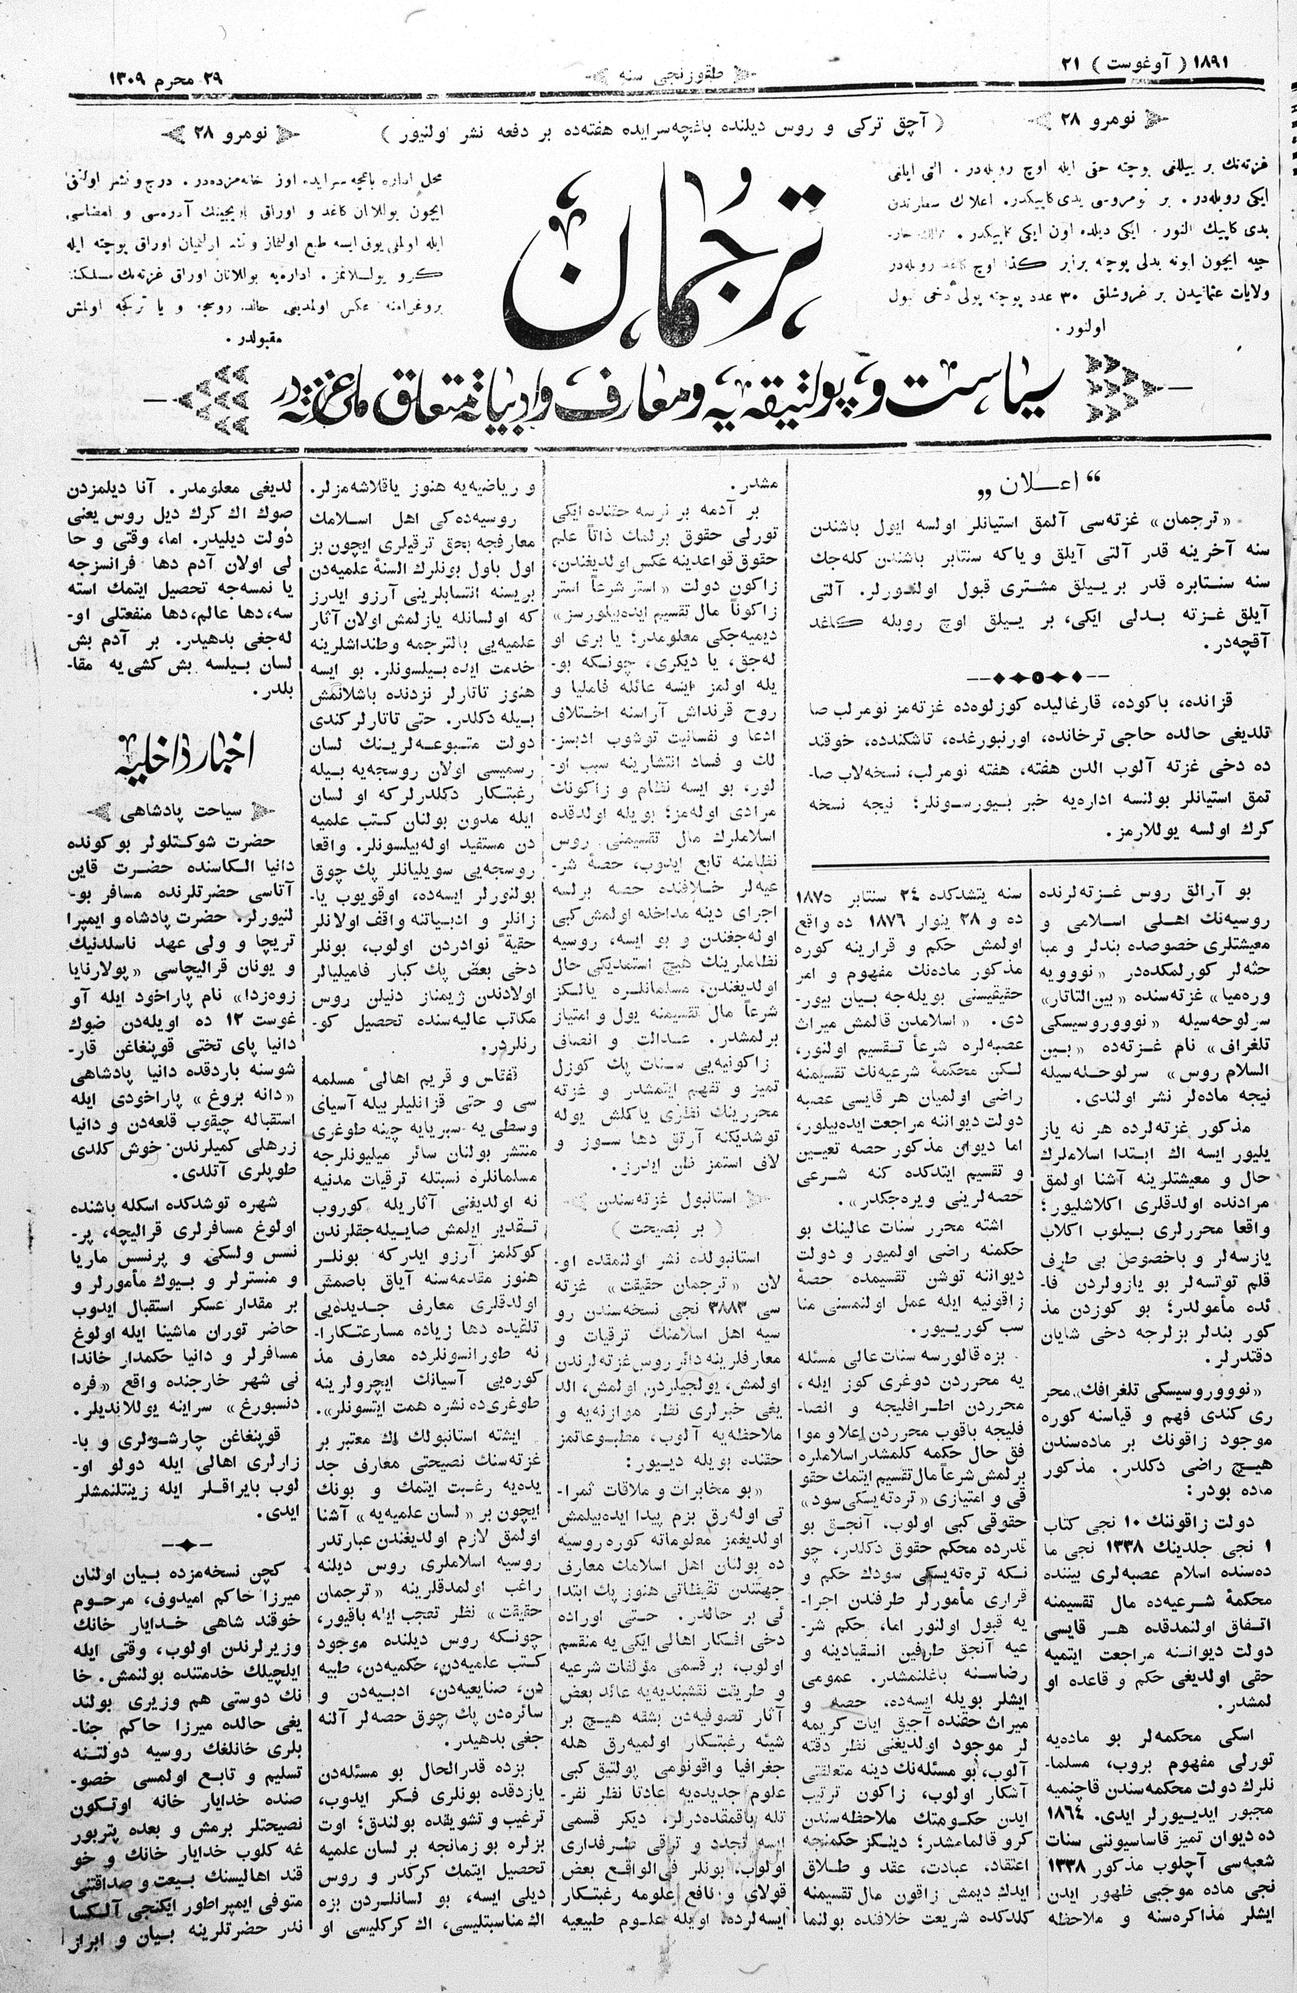 ١٨٩١ ( آوغوست ) ٢١
طقوزنجی سنه
٢٩ محرم ١٣٠٩
نومرو ٢٨
( آچق تركی و روس دیلنده باغچه‌سرایده هفته‌ده بر دفعه نشر اولنیور )
نومرو ٢٨
غزته‌نك بر ییللغی پوچته حقی ایله اوچ روبله‌در. التی ایلغی
ایكی روبله‌در. بر نومروسی یدی كاپیكدر. اعلان سطرندن
یدی كاپیك النور. ایكی دیلده اون ایكی كاپیكدر.
جیه ایچون ابونه بدلی پوچته برابر اوچ كاغد روبله‌در
ولایات عثمانیدن بر غروشلق ٣٠ عدد پوچته پولی دخی قبول
اولنور.
ترجمان
محل اداره باغچه سرایده اوز خانه‌مزده‌در. درج و نشر اولنق
ایچون یوللانان كاغد و اوراق یازیجینك آدره‌سی و امضاسی
ایله اولملی یوق ایسه طبع اولنماز و اوراق پوچته ایله
كرو یوللانمز. اداره‌یه یوللانان اوراق غزته‌نك مسلكنه
پروغرامنه عكس اولمدیغی حالده روسجه و یا تركجه اولمش
مقبولدر.
سیاست و پولتیقه‌یه و معارف و ادبیاته متعلق ملی غزته‌در
“ اعلان „
«ترجمان» غزته‌سی آلمق استیانلر اولسه ایول باشندن
سنه آخرینه قدر آلتی آیلق و یاكه سنتابر باشندن كله‌جك
سنه سنتابره قدر بر ییلق مشتری قبول اولنورلر. آلتی
آیلق غزته بدلی ایكی، بر ییلق اوچ روبله كاغد
آقچه‌در.
قزانده، باكوده، قارغالیده كوزلوه‌ده غزته‌مز نومرلب صا
تلدیغی حالده حاجی ترخانده، اورنبورغده، تاشكندده، خوقند
ده دخی غزته آلوب الدن هفته، هفته نومرلب، نسخه‌لاب صا-
تمق استیانلر بولنسه اداره‌یه خبر بیورسونلر؛ نیجه نسخه
كرك اولسه یوللارمز.
بو آرالق روس غزته‌لرنده
روسیه‌نك اهلی اسلامی و
معیشتلری خصوصده بندلر و مبا
حثه‌لر كورلمكده‌در «نوویه
وره‌میا» غزته‌سنده «بین‌التاتار»
سرلوحه‌سیله «نووروسیسكی
تلغراف» نام غزته‌ده «بین
السلام روس» سرلوحه‌سیله
نیجه ماده‌لر نشر اولندی.
مذكور غزته‌لرده هر نه یاز
یلیور ایسه اك ابتدا اسلاملرك
حال و معیشتلرینه آشنا اولمق
مرادنده اولدقلری اكلاشلیور؛
واقعا محررلری بیلوب اكلاب
یازسه‌لر و باخصوص بی طرف
قلم توتسه‌لر بو یازولردن فا-
ئده مأمولدر؛ بو كوزدن مذ
كور بندلر بزلرجه دخی شایان
دقتدرلر.
«نووروسیسكی تلغرافك» محر
ری كندی فهم و قیاسنه كوره
موجود زاقونك بر ماده‌سندن
هیچ راضی دكلدر. مذكور
ماده بودر:
دولت زاقوننك ١٠ نجی كتاب
١ نجی جلدینك ١٣٣٨ نجی ما
ده‌سنده اسلام عصبه‌لری بیننده
محكمهٔ شرعیه‌ده مال تقسیمنه
اتفاق اولنمدقده هر قایسی
دولت دیواننه مراجعت ایتمیه
حقی اولدیغی حكم و قاعده او
لمشدر.
اسكی محكمه‌لر بو ماده‌یه
تورلی مفهوم بروب، مسلما-
نلرك دولت محكمه‌سندن قاچنمیه
مجبور ایدیورلر ایدی. ١٨٦٤
ده دیوان تمیز قاساسیوننی سنات
شعبه‌سی آچلوب مذكور ١٣٣٨
نجی ماده موجبی ظهور ایدن
ایشلر مذاكره‌سنه و ملاحظه
سنه یتشدكده ٢٤ سنتابر ١٨٧٥
ده و ٢٨ ینوار ١٨٧٦ ده واقع
اولمش حكم و قرارینه كوره
مذكور ماده‌نك مفهوم و امر
حقیقیسنی بویله‌جه بیان بیور-
دی. «اسلامدن قالمش میراث
عصبه‌لره شرعاً تقسیم اولنور،
لكن محكمهٔ شرعیه‌نك تقسیمنه
راضی اولمیان هر قایسی عصبه
دولت دیواننه مراجعت ایده‌بیلور،
اما دیوان مذكور حصه تعیین
و تقسیم ایتدكده كنه شرعی
حصه‌لرینی ویره‌جكدر».
اشته محرر سنات عالینك بو
حكمنه راضی اولمیور و دولت
دیواننه توشن تقسیمده حصهٔ
زاقونیه ایله عمل اولنمسنی منا
سب كوریور.
بزه قالورسه سنات عالی مسئله
یه محرردن دوغری كوز ایله،
محرردن اطرافلیجه و انصا-
فلیجه باقوب محرردن اعلا و موا
فق حال حكمه كلمشدر اسلاملره
برلمش شرعاً مال تقسیم ایتمك حقو
قی و امتیازی «تره‌ته‌یسكی سود»
حقوقی كبی اولوب، آنجق بو
قدرده محكم حقوق دكلدر، چو
نكه تره‌ته‌یسكی سودك حكم و
قراری مأمورلر طرفندن اجرا-
یه قبول اولنور اما، حكم شر-
عیه آنجق طرفین انقیادینه و
رضاسنه باغلنمشدر. عمومی
ایشلر بویله ایسه‌ده، حصه و
میراث حقنده آچیق ایات كریمه
لر موجود اولدیغنی نظر دقته
آلوب، بو مسئله‌نك دینه متعلقتی
آشكار اولوب، زاكون ترتیب
ایدن حكومتك ملاحظه‌سندن
كرو قالمامشدر؛ دینكز حكمنجه
اعتقاد، عبادت، عقد و طلاق
ایدك دیمش زاقون مال تقسیمنه
كلدكده شریعت خلافنده بولنما
مشدر.
بر آدمه بر نرسه حقنده ایكی
تورلی حقوق برلمك ذاتاً علم
حقوق قواعدینه عكس اولدیغندن،
زاكون دولت «استر شرعاً استر
زاكوناً مال تقسیم ایده‌بیلورسز»
دیمیه‌جكی معلومدر؛ یا بری او
له‌جق، یا دیكری، چونكه بو-
یله اولمز ایسه عائله فاملیا و
روح قرنداش آراسنه اختلاف
ادعا و نفسانیت توشوب ادبسز-
لك و فساد انتشارینه سبب او-
لور، بو ایسه نظام و زاكونك
مرادی اوله‌مز؛ بویله اولدقده
اسلاملرك مال تقسیمنی روس
نظامنه تابع ایدوب، حصهٔ شر-
عیه‌لر خلافنده حصه برلسه
اجرای دینه مداخله اولمش كبی
اوله‌جغندن و بو ایسه، روسیه
نظاملرینك هیچ استمدیكی حال
اولدیغندن، مسلمانلره یالكز
شرعاً مال تقسیمنه یول و امتیاز
برلمشدر. عدالت و انصاف
زاكونیه‌یی سنات پك كوزل
تمیز و تفهم ایتمشدر و غزته
محررینك نظری یاكلش یوله
توشدیكنه آرتق دها سوز و
لاف استمز ظن ایدرز.
استانبول غزته‌سندن
( بر نصیحت )
استانبولده نشر اولنمقده او-
لان «ترجمان حقیقت» غزته
سی ٣٨٨٣ نجی نسخه‌سندن رو
سیه اهل اسلامنك ترقیات و
معارفلرینه دائر روس غزته‌لرندن
اولمش، یولجیلردن اولمش، الد
یغی خبرلری نظر موازنه‌یه و
ملاحظه‌یه آلوب، مطبوعاتمز
حقنده بویله دیور:
«بو مخابرات و ملاقات ثمرا-
تی اوله‌رق بزم پیدا ایده‌بیلمش
اولدیغمز معلوماته كوره روسیه
ده بولنان اهل اسلامك معارف
جهتندن تقیفلاتی هنوز پك ابتدا
ئی بر حالدر. حتی اوراده
دخی افكار اهالی ایكی یه منقسم
اولوب، بر قسمی مؤلفات شرعیه
و طریقت نقشبندیه‌یه عائد بعض
آثار تصوفیه‌دن بشقه هیچ بر
شیئه رغبتكار اولمیه‌رق هله
جغرافیا واقونومی پولتیق كبی
علوم جدیده‌یه عادتا نظر نفر-
تله باقمقده‌درلر. دیكر قسمی
ایسه تجدد و ترقی طرفداری
اولوب، بونلر فی‌الواقع بعض
قولای و نافع علومه رغبتكار
ایسه‌لرده، اویله علوم طبیعیه
و ریاضیه‌یه هنوز یاقلاشه‌مزلر.
روسیه‌ده‌كی اهل اسلامك
معارفجه بحق ترقیلری ایچون بز
اول باول بونلرك السنهٔ علمیه‌دن
بریسنه انتسابلرینی آرزو ایدرز
كه اولسانله یازلمش اولان آثار
علمیه‌یی بالترجمه وطنداشلرینه
خدمت ایده بیلسونلر. بو ایسه
هنوز تاتارلر نزدنده باشلانمش
بیله دكلدر. حتی تاتارلر كندی
دولت متبوعه‌لرینك لسان
رسمیسی اولان روسجه‌یه بیله
رغبتكار دكلدرلر كه او لسان
ایله مدون بولنان كتب علمیه
دن مستفید اوله‌بیلسونلر. واقعا
روسجه‌یی سویلیانلر پك چوق
بولنورلر ایسه‌ده، اوقویوب یا-
زانلر و ادبیاتنه واقف اولانلر
حقیقةً نوادردن اولوب، بونلر
دخی بعض پك كبار فامیلیالر
اولادندن ژیمناز دنیلن روس
مكاتب عالیه‌سنده تحصیل كو-
رنلردر.
تفتاس و قریم اهالیٔ مسلمه
سی و حتی قزانلیلر بیله آسیای
وسطی یه سبریایه چینه طوغری
منتشر بولنان سائر میلیونلرجه
مسلمانلره نسبتله ترقیات مدنیه
نه اولدیغنی آثاریله كوروب
تقدیر ایلمش صاییله‌جقلرندن
كوكلمز آرزو ایدر كه بونلر
هنوز مقدمه‌سنه آیاق باصمش
اولدقلری معارف جدیده‌یی
تلقیده دها زیاده مسارعتكارا-
نه طورانسونلرده معارف مذ
كوره‌یی آسیانك ایچرولرینه
طوغری‌ده نشره همت ایتسونلر».
ایشته استانبولك اك معتبر بر
غزته‌سنك نصیحتی معارف جد
یده‌یه رغبت ایتمك و بونك
ایچون بر «لسان علمیه‌یه» آشنا
اولمق لازم اولدیغندن عبارتدر
روسیه اسلاملری، روس دیلنه
راغب اولمدقلرینه «ترجمان
حقیقت» نظر تعجب ایله باقیور،
چونكه روس دیلنده موجود
كتب علمیه‌دن، حكمیه‌دن، طبیه
دن، صنایعیه‌دن، ادبیه‌دن و
سائره‌دن پك چوق حصه‌لر آلنه
جغی بدهیدر.
بزده قدرالحال بو مسئله‌دن
یازدقده بونلری فكر ایدوب،
ترغیب و تشویقده بولندق؛ اوت
بزلره بو زمانجه بر لسان علمیه
تحصیل ایتمك كركدر و روس
دیلی ایسه، بو لسانلردن بزه
اك مناسبتلیسی، اك كركلیسی او
لدیغی معلومدر. آنا دیلمزدن
صوك اك كرك دیل روس یعنی
دولت دیلیدر. اما، وقتی و حا
لی اولان آدم دها فرانسزجه
یا نمسه‌جه تحصیل ایتمك استه
سه، دها عالم، دها منفعتلی او-
له‌جغی بدهیدر. بر آدم بش
لسان بیلسه بش كشی یه مقا-
بلدر.
اخبار داخلیه
سیاحت پادشاهی
حضرت شوكتلولر بو كونده
دانیا الكاسنده حضرت قاین
آتاسی حضرتلرنده مسافر بو-
لنیورلر. حضرت پادشاه و ایمپرا
تریچا و ولی عهد ناسلدنیك
و یونان قرالیچاسی «پولارنایا
زوه‌زدا» نام پاراخود ایله آو
غوست ١٢ ده اویله‌دن ضوك
دانیا پای تختی قوپنغاغن قار-
شوسنه باردقده دانیا پادشاهی
«دانه بروغ» پاراخودی ایله
استقباله چیقوب قلعه‌دن و دانیا
زرهلی كمیلرندن خوش كلدی
طوپلری آتلدی.
شهره توشدكده اسكله باشنده
اولوغ مسافرلری قرالیچه، پر-
نسس ولسكی و پرنسس ماریا
و منسترلر و بیوك مأمورلر و
بر مقدار عسكر استقبال ایدوب
حاضر توران ماشینا ایله اولوغ
مسافرلر و دانیا حكمدار خاندا
نی شهر خارجنده واقع «فره
دنسبورغ» سراینه یوللاندیلر.
قوپنغاغن چارشولری و با-
زارلری اهالی ایله دولو او-
لوب بایراقلر ایله زینتلنمشلر
ایدی.
كچن نسخه‌مزده بیان اولنان
میرزا حاكم امیدوف، مرحوم
خوقند شاهی خدایار خانك
وزیرلرندن اولوب، وقتی ایله
ایلچیلك خدمتنده بولنمش. خا
نك دوستی هم وزیری بولند
یغی حالده میرزا حاكم جنا-
بلری خانلغك روسیه دولتنه
تسلیم و تابع اولمسی خصو-
صنده خدایار خانه اوتكون
نصیحتلر برمش و بعده پتربور
غه كلوب خدایار خانك و خو
قند اهالیسنك بیعت و صداقتنی
متوفی ایمپراطور ایكنجی آلكسا
ندر حضرتلرینه بیان و ابراز